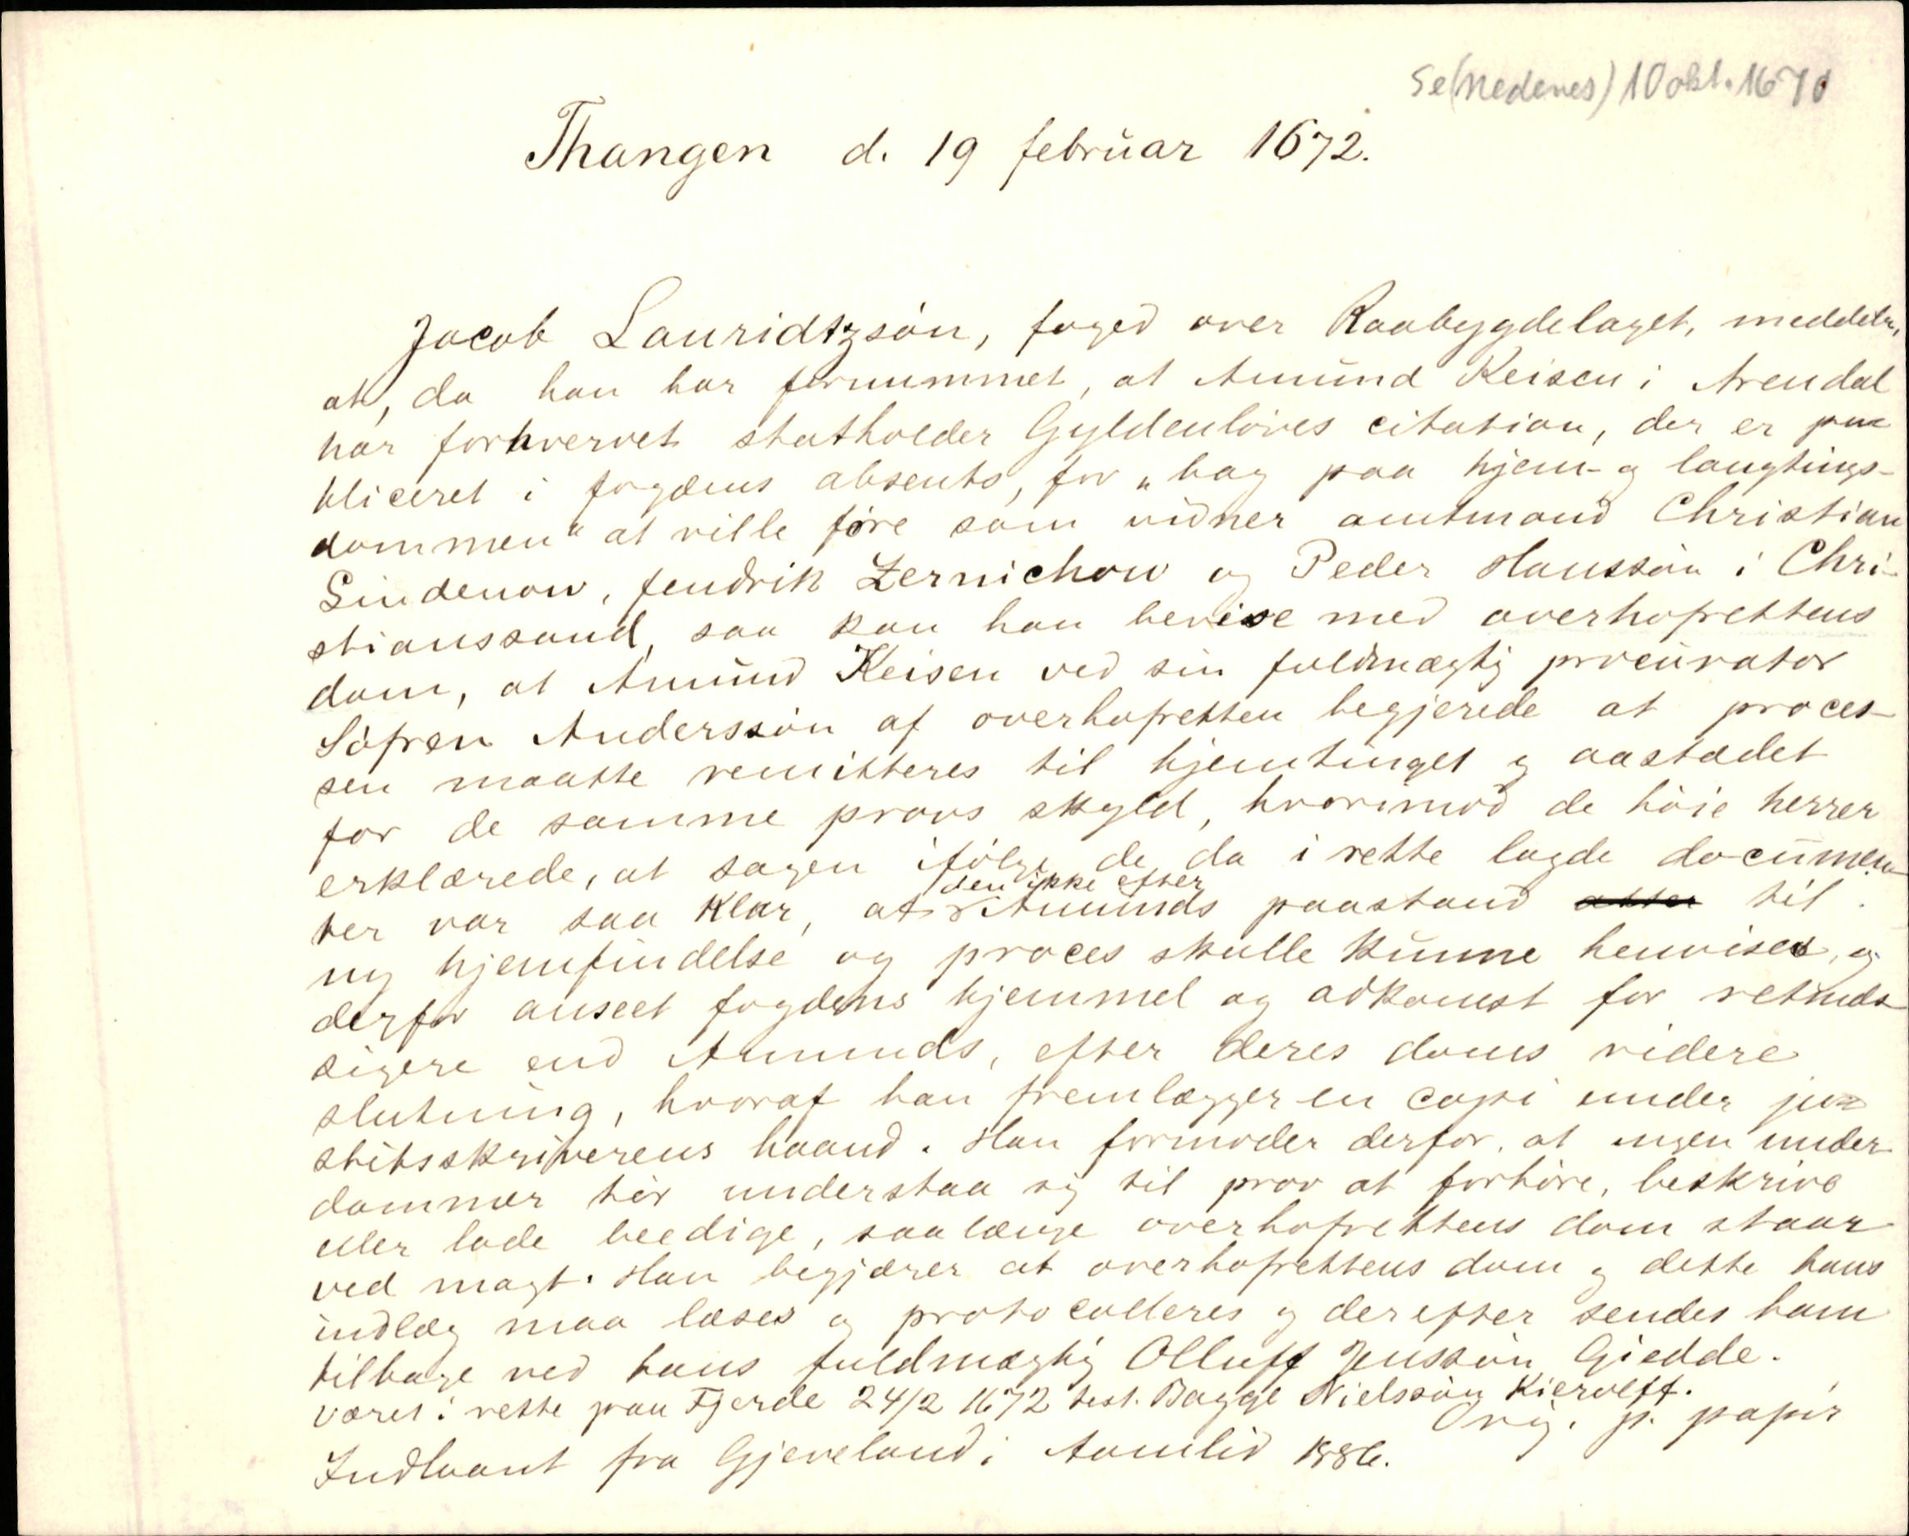 Se (Nedenes) 10 okt. 1670
Thangen d. 19 februar 1672.
Jacob Lauridtzsön, foged over Raabygdelaget, meddeler,
at, da han har fornummet, at Amund Keisen i Arendal
har forhvervet statholder Gyldenlöves citation, der er pu=
bliceret i fogdens absents, for „bag paa hjem- og laugtings-
dommen“ at ville före som vidner amtmand Christian
Lindenow, fendrik Zernichow og Peder Hanssön i Chri-
stianssand, saa kan han bevise med overhofrettens
dom, at Amund Keisen ved sin fuldmægtig procurator
Söfren Anderssön af overhofretten begjerede at proces-
sen maatte remitteres til hjemtinget og aastædet
for de samme provs skyld, hvorimod de höie herrer
erklærede, at sagen ifölge de da i rette lagde documen-
ter var saa klar, at den ikke efter Amunds paastand til
ny hjemfindelse og proces skulle kunne henvises, og
derfor anseet fogdens hjemmel og adkomst for retmæs-
sigere end Amunds, efter deres doms videre
slutning, hvoraf han fremlægger en copi under ju=
stitsskriverens haand. Han formoder derfor, at ingen under-
dommer tör understaa sig til prov at forhöre, beskrive
eller lade beedige, saalænge overhofrettens dom staar
ved magt. Han begjærer at overhofrettens dom og dette hans
indlæg maa læses og protocolleres og derefter sendes ham
tilbage ved hans fuldmægtig Olluff Jenssön Giedde.
Været i rette paa Fjerde 24/2 1672 test. Bagge Nielssön Kierulff.
Orig. p. papir
Indlaant fra Gjeveland i Aamlid 1886.